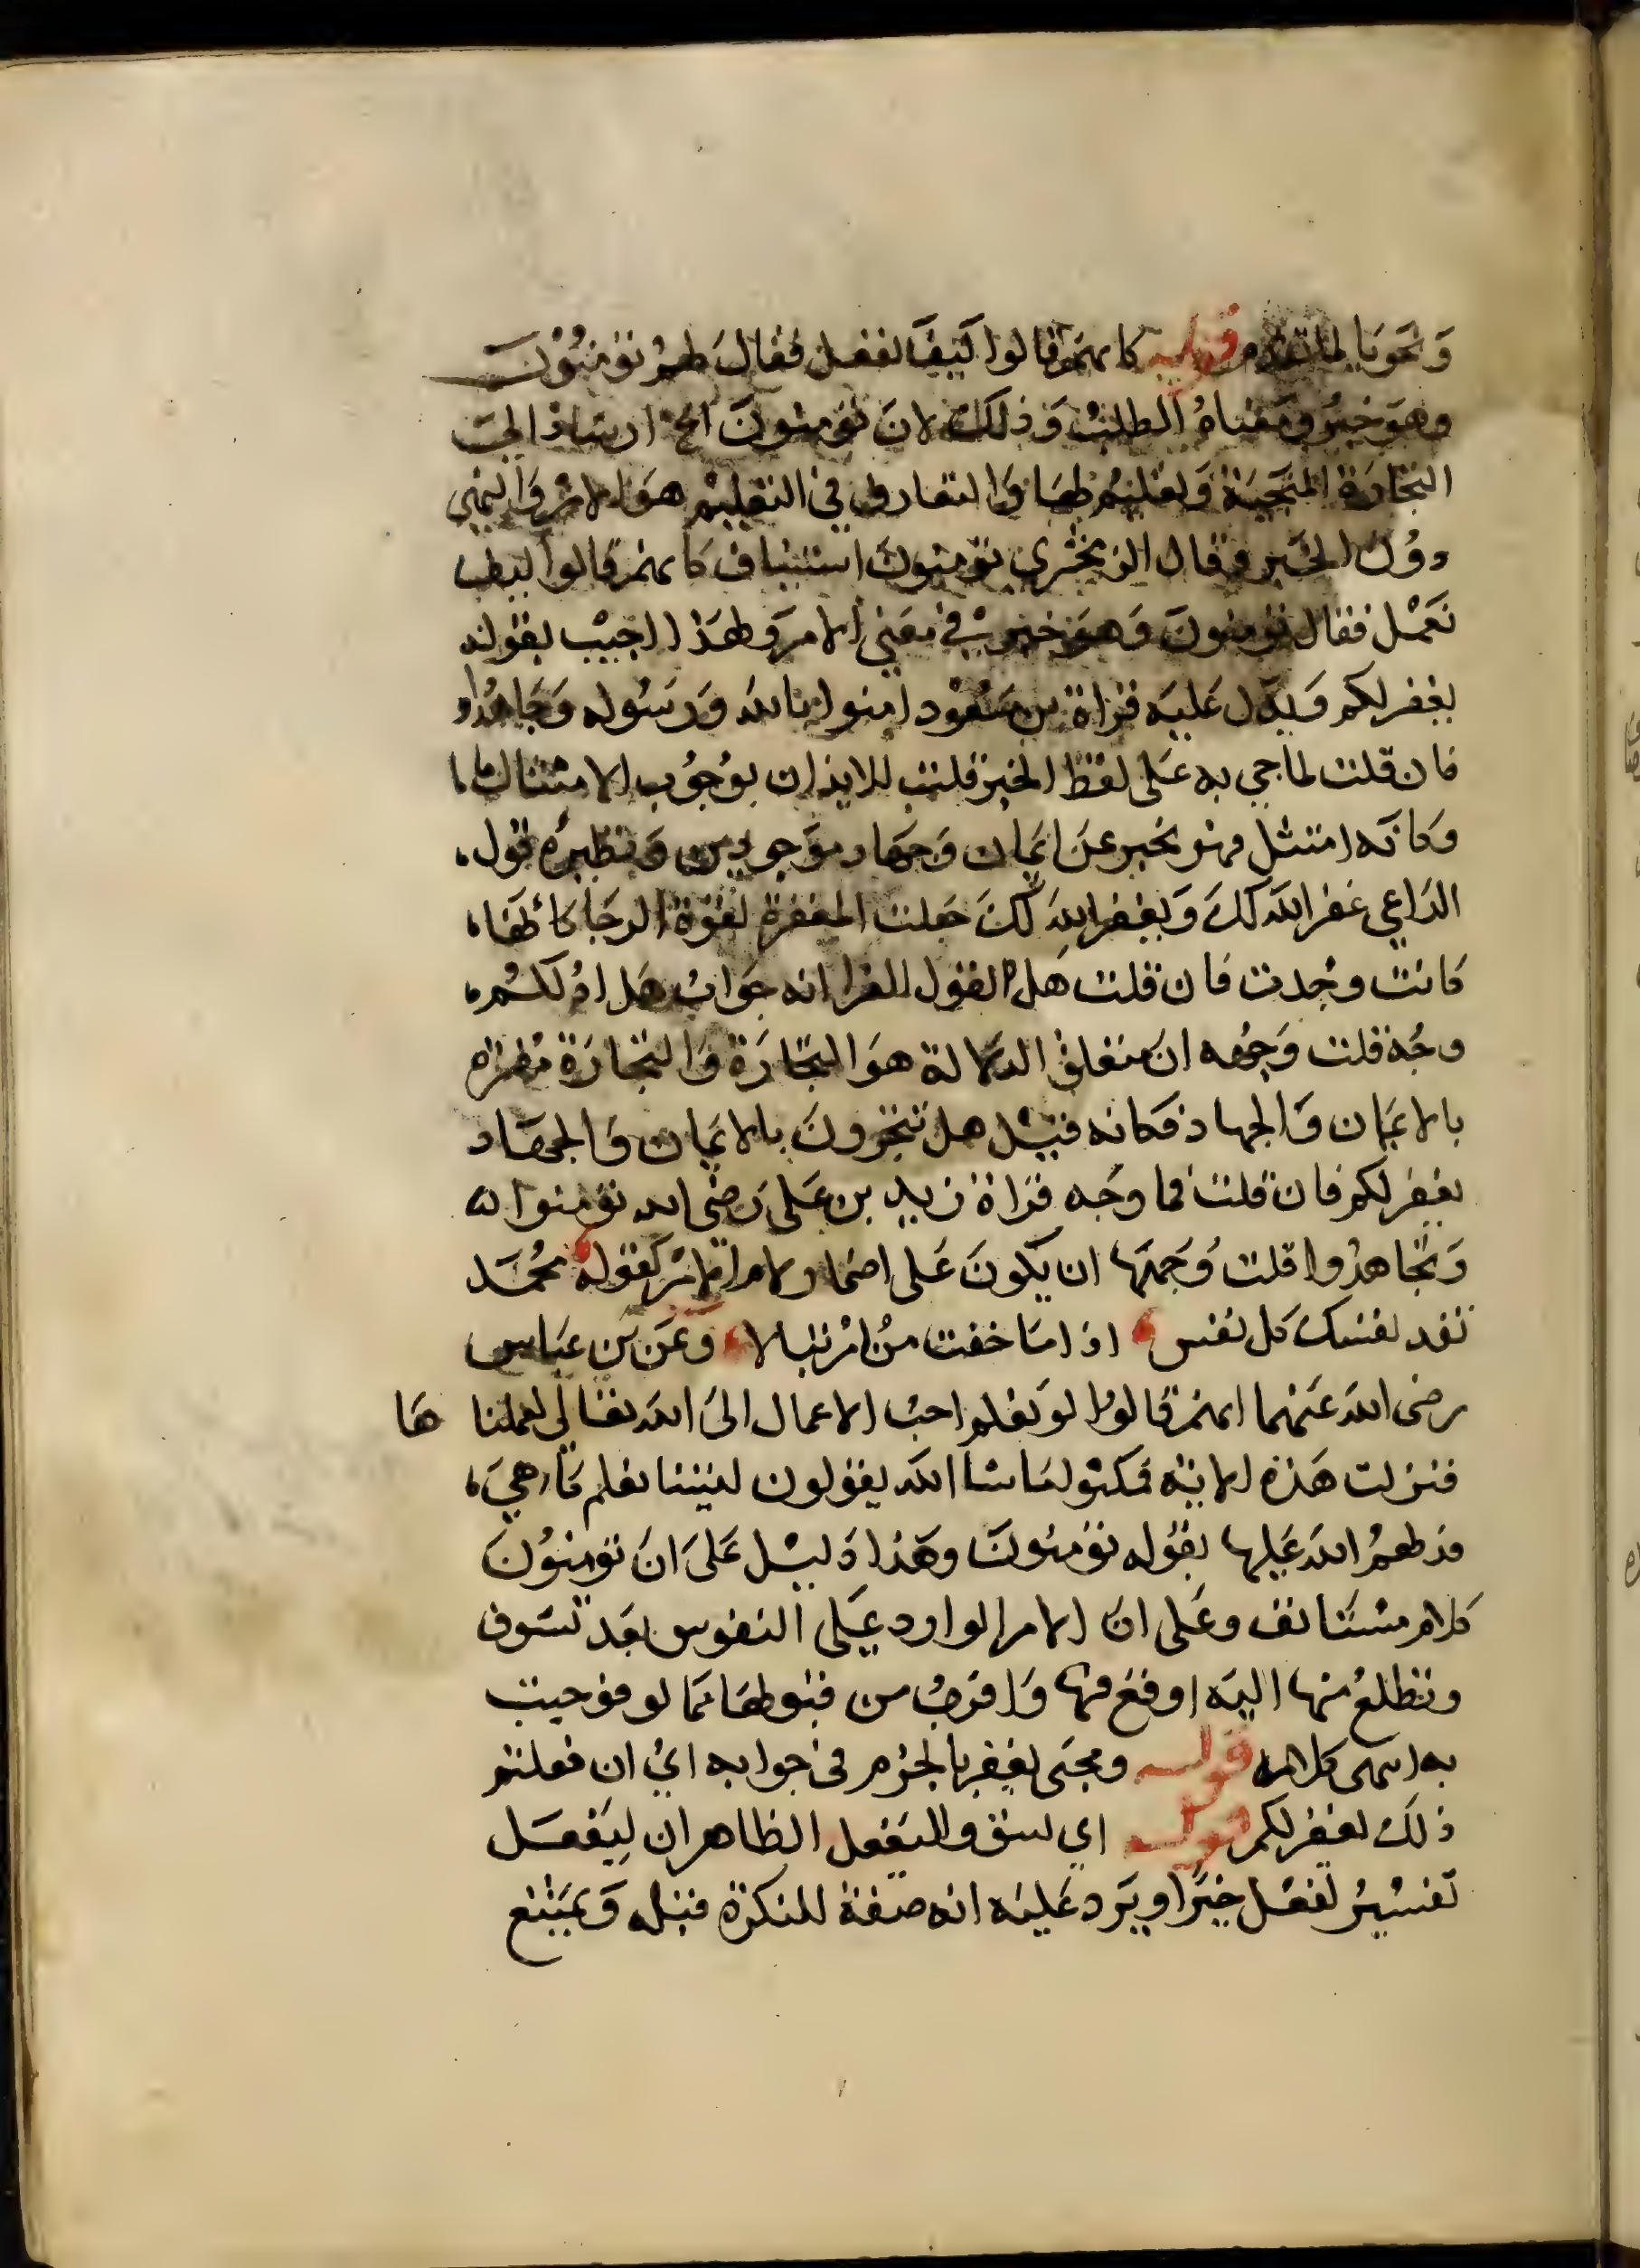 وَنَحوَيا لما تقدم قوله كانهم قالوا كَيفَ نفعل فقال لهم تؤمنُون
وهو خبرُ ومعناهُ الطلبُ وَذلك لان تؤمنون الخ ارشاد الى
التجارة المنجية وَتعليم لها وَالتعارف في التعليم هوَ الامر وَالنهي
دوُن الخبر وقال الزمخشري تؤمنون استيناف كانهم قالوا كيف
نَعْمل فقال تؤمنون وَهوَ خبر في معنى الامر وَلهذا اجيب بقوله
يغفر لكم وَيدل عَليه قراة بن مسعُود امنوا بالله وَرسُوله وَجاهدُوا
فان قلت لما جي به عَلى لفظ الخبر قلت للايذان بوُجوُب الامتثال
وَكانه امتثل فهو يخبر عن ايمان وَجهاد موَجودين وَنظيرهُ قول
الداعي غفر الله لكَ وَيغفر الله لكَ جعلت المغفرة لقوة الرجا كانها
كانت وجُدت فان قلت هل لقول الفرا انه جَواب هَل ادُلكم
وجُه قلت وَجهه ان متعلق الدلالة هوَ التجارَة وَالتجارَة مفسرة
بالايمان وَالجهاد فكانه قيل هل تتجرونَ بالايمان وَالجهاد
يغفر لكم فان قلت فما وجَه قراة زيد بن عَلى رَضى الله تؤمنوا
وَتجاهدُوا قلت وَجهها ان يكونَ عَلى اضمار لام الامر كقوله محُمَد
تفد نفسك كل نفس اذا ما خفت من امر تبالا وعَن بن عبَاس
رضى الله عَنهما انهم قالوا لو نعلم احب الاعمال الىَ الله تعَالى لعملنا هَا
فنزلت هَذه الاية فمكثوا ما شا الله يقولون ليتنا نعلم مَا هيَ
فدلهمُ الله عَليها بقوُله تؤمنُونَ وهَذا دَليْل عَلىَ انَ تؤمنوُنَ
كلام مستانف وعَلى ان الامر الوارد عَلى النفوس بعَد تشوف
وتطلع منها اليَه اوقع فيها وَاقرب من قبولها مَما لو فوجيت
به اسهى كلامه قوله ومجى يغفر بالجزم في جوابه ايُ ان فعلتم
ذلكَ يغفر لكم قوله اي لسق واليفعل الظاهر ان ليفعَل
تفسيرُ لفعل خبَرا ويَرد عَليَه انه صفة للنكرة قبله وَيمَتنع